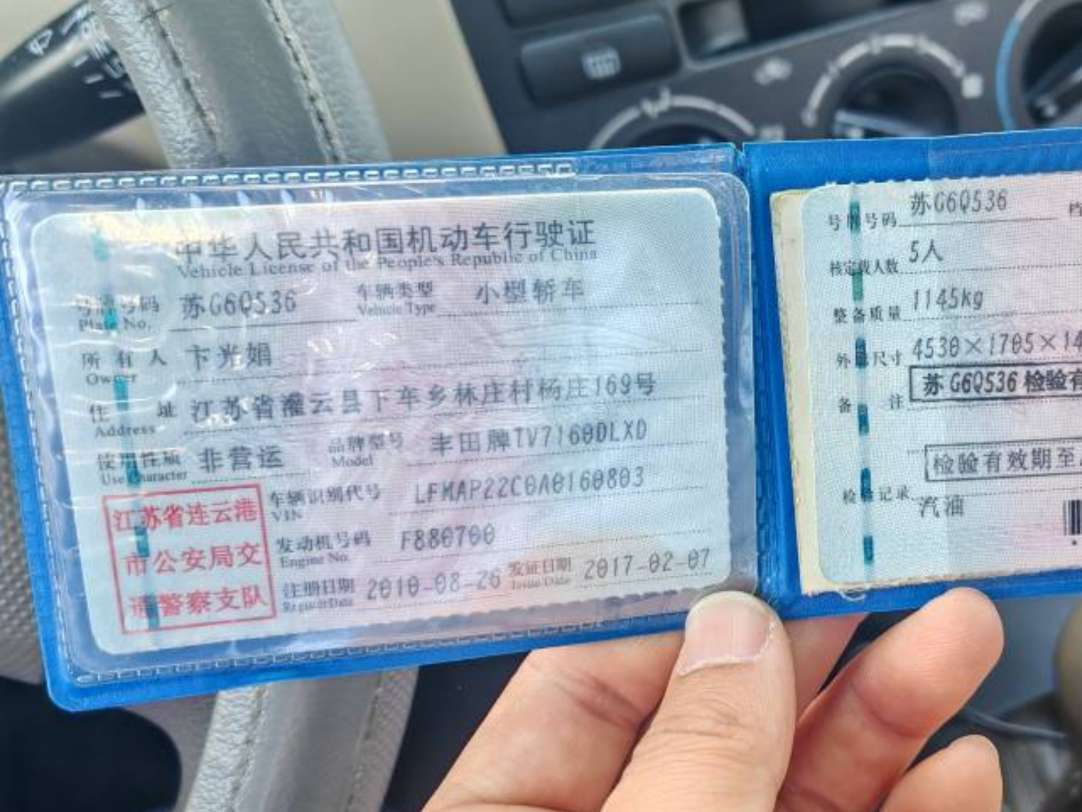 中华人民共和国机动车行驶证
Vehicle License of the People's Republic of China
号牌号码 苏G6Q536 车辆类型 小型轿车
Plate No. Vehicle Type
所有人 卞光娟
Owner
住址 江苏省灌云县下车乡林庄村杨庄169号
Address
使用性质 非营运 品牌型号 丰田牌TV7160DLXD
Use Character Model
江苏省连云港
市公安局交
通警察支队
车辆识别代号 LFMAP22C0A0160803
VIN
发动机号码 F880700
Engine No.
注册日期 2010-08-26 发证日期 2017-02-07
Register Date Issue Date
号牌号码 苏G6Q536
核定载人数 5人
整备质量 1145kg
外廓尺寸 4530×1705×14
备注 苏G6Q536 检验有
检验有效期至
检验记录 汽油